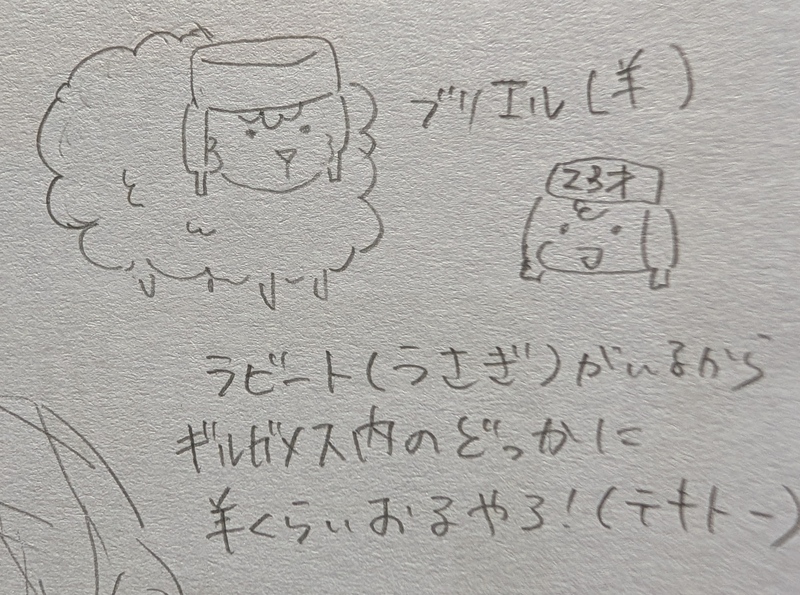 ブリエル(羊)
23才
ラビート(うさぎ)がいるから
ギルガメス内のどっかに
羊くらいおるやろ!(テキトー)